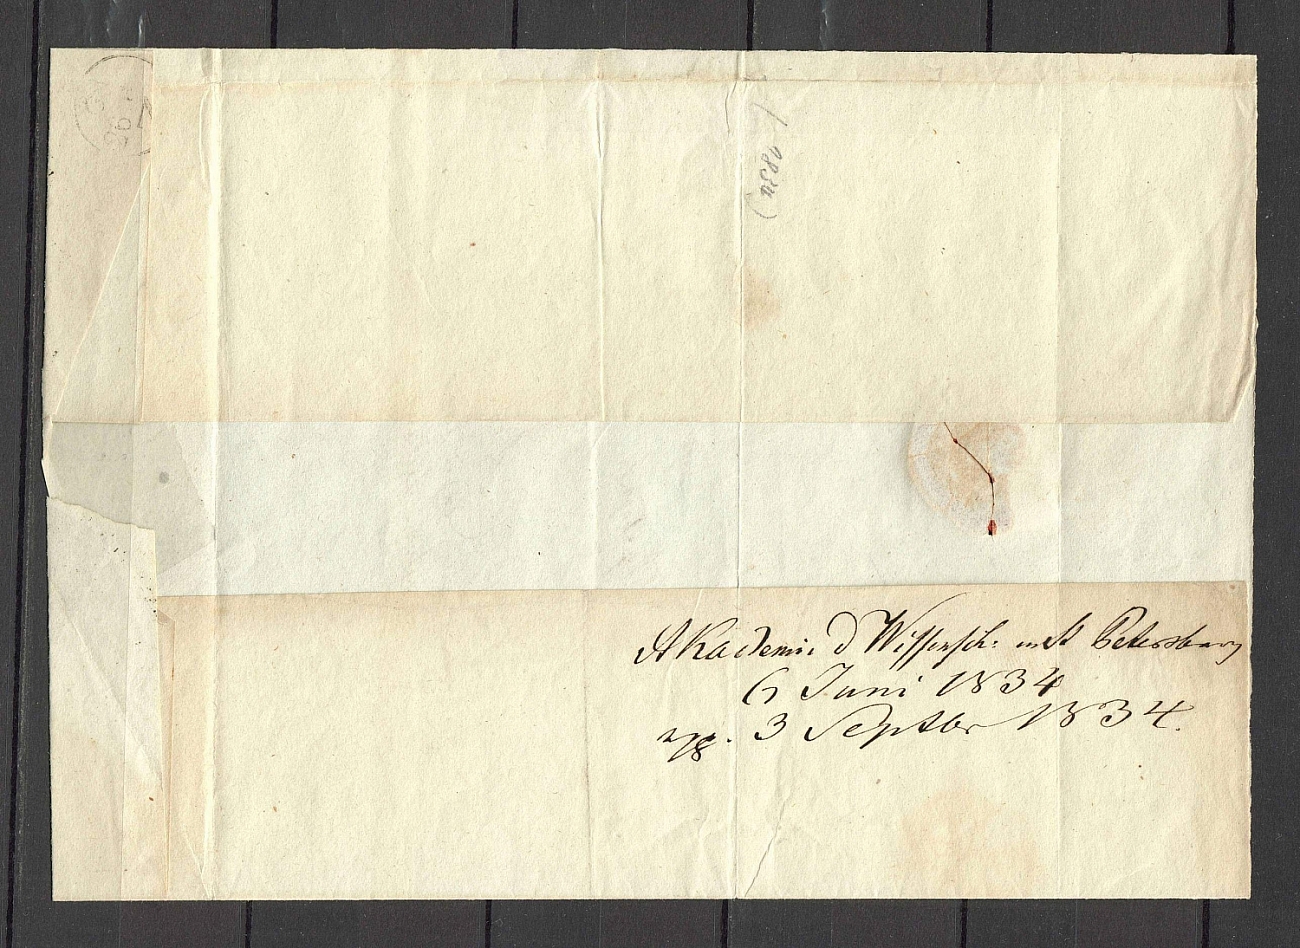 (1834)
Akademie d Wissensch: in St Petersburg
6 Juni 1834
3 Septbr 1834.